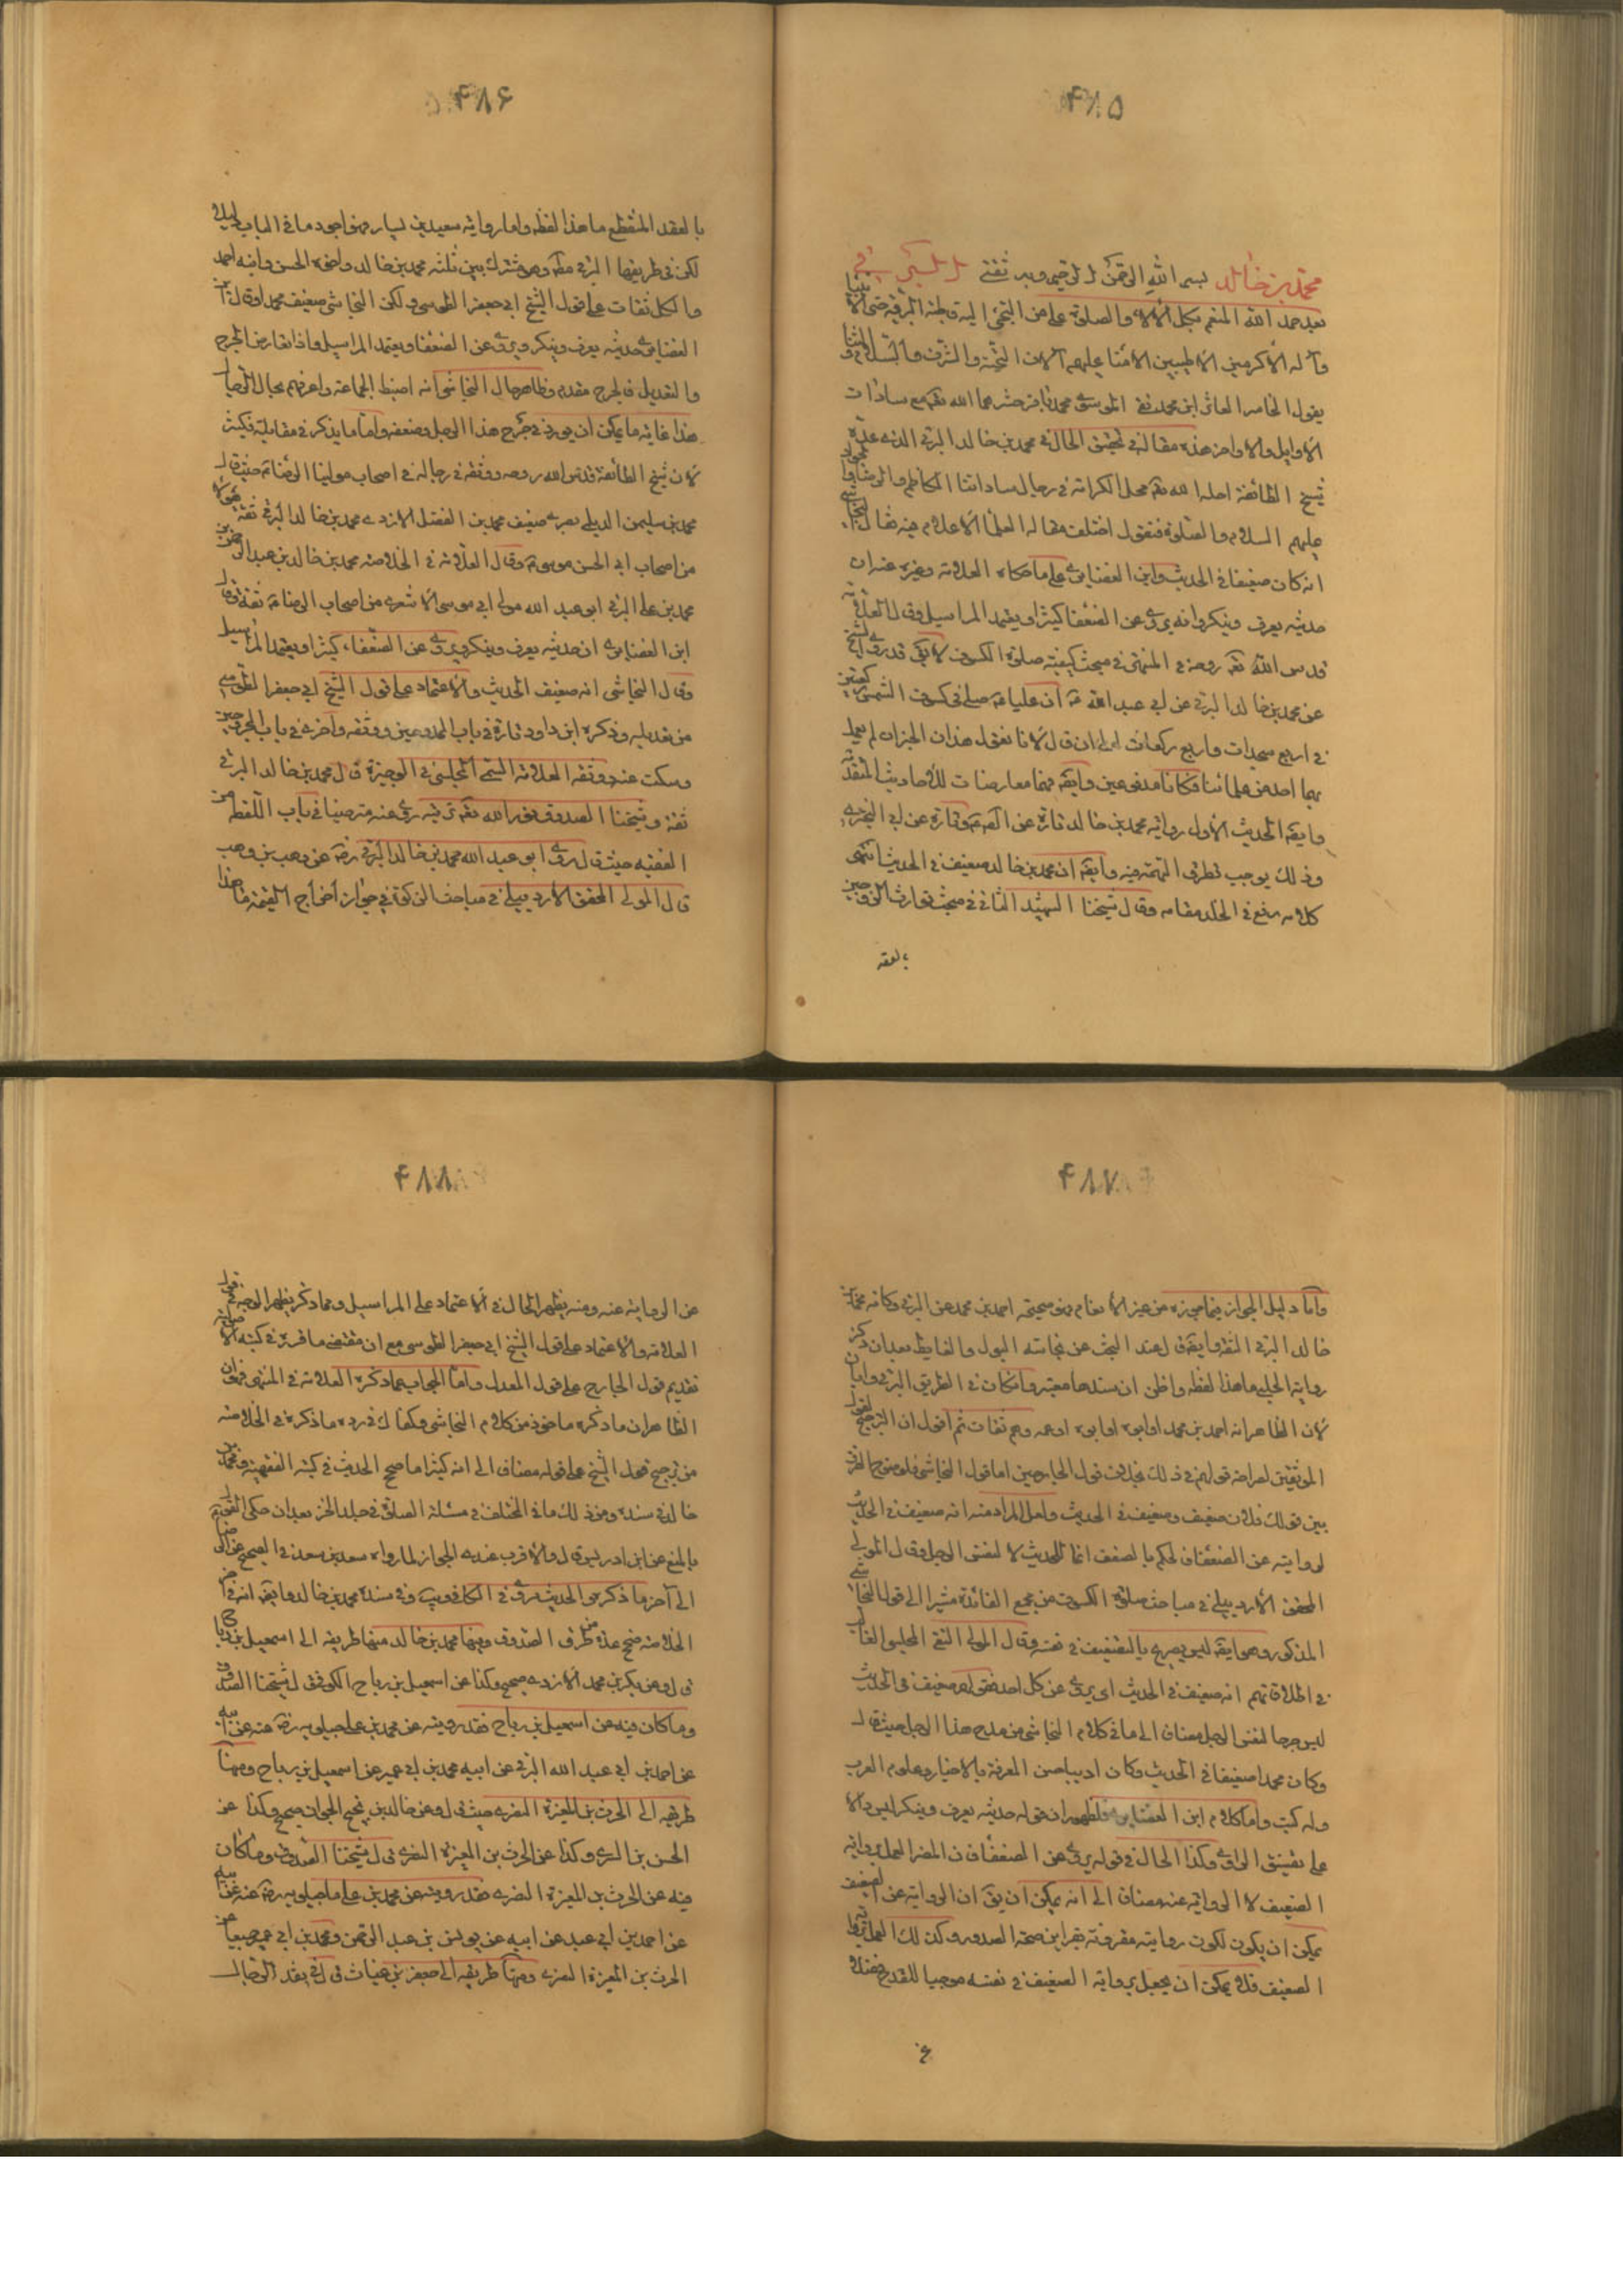 ۴۸۵
محمد بن خالد بسم الله الرحمن الرحيم وبه ثقتي
بعد حمد الله المنعم بكل الآلاء والصلوة على من التجئ اليه قاطبة البرية حتى الأنبيا
وآله الأكرمين الأطيبين الأمنا عليهم آلاف التحية والشرف والتسليم
يقول الخاسر العاثر ابن محمد نقي الموسوي محمد باقر حشرهما الله تعالى مع سادات
الأوايل والأواخر هذه مقالة في تحقيق الحال في محمد بن خالد البرقي الذي عده
شيخ الطائفة احله الله تعالى محل الكرامة في رجال ساداتنا الكاظم والرضا والجواد
عليهم السلام والصلوة فنقول اختلف مقالة العلما الأعلام فيه فقال النجاشي
انه كان ضعيفا في الحديث وابن الغضايري على ما حكاه العلامة وغيره عنه ان
حديثه يعرف وينكر وانه يروي عن الضعفا كثيرا ويعتمد المراسيل وقال العلامة
قدس الله تعالى روحه في المنتهى في مبحث كيفية صلوة الكسوف لا يقال قد روى الشيخ
عن محمد بن خالد البرقي عن ابي عبد الله ع ان عليا ع صلى في كسوف الشمس ركعتين
في اربع سجدات واربع ركعات الى ان قال لأنا نقول هذان الخبران لم يعمل
بهما احد من علمائنا فكانا مدفوعين وايضا فهما معارضات للأحاديث المتقدمة
وايضا الحديث الأول رواية محمد بن خالد تارة عن الصادق ع وتارة عن ابي البختري
وذلك يوجب تطرق التهمة فيه وايضا ان محمد بن خالد ضعيف في الحديث انتهى
كلامه رفع في الخلد مقامه وقال شيخنا الشهيد الثاني في مبحث توارث الزوجين
بالعقد
۴۸۶
بالعقد المنقطع ما هذا لفظه واما رواية سعيد بن يسار فهو اجود ما في الباب دليلا
لكن في طريقها البرقي مطلقا وهو مشترك بين ثلثة محمد بن خالد واخوه الحسن وابنه احمد
والكل ثقات على قول الشيخ ابي جعفر الطوسي ولكن النجاشي ضعيف محمدا وقال ابن
الغضايري حديثه يعرف وينكر ويروى عن الضعفا ويعتمد المراسيل واذا تعارض الجرح
والتعديل فالجرح مقدم وظاهر حال النجاشي انه اضبط الجماعة واعرفهم بحال الرجال
هذا غاية ما يمكن ان يورد في جرح هذا الرجل وضعفه واما ما يذكر في مقابلته فكثير
لأن شيخ الطائفة قدس الله روحه وثقه في رجاله في اصحاب مولينا الرضا ع حيث قال
محمد بن سليمن الديلمي بصري ضعيف محمد بن الفضل الازدي محمد بن خالد البرقي ثقة هؤلاء
من اصحاب ابي الحسن موسى ع وقال العلامة في الخلاصة محمد بن خالد بن عبد الرحمن
محمد بن علي البرقي ابو عبد الله مولى ابي موسى الأشعري من اصحاب الرضا ع ثقة وقال
ابن الغضايري ان حديثه يعرف وينكر ويروي عن الضعفاء كثيرا ويعتمد المراسيل
وقال النجاشي انه ضعيف الحديث والاعتماد على قول الشيخ ابي جعفر الطوسي
من تعديله وذكره ابن داود تارة في باب الممدوحين ووثقه واخرى في باب المجروحين
وسكت عنه ووثقه العلامة السمي المجلسي في الوجيزة قال محمد بن خالد البرقي
ثقة وشيخنا الصدوق نور الله تعالى مرقده روى عنه مترضيا في باب اللقطة من
الفقيه حيث قال روى ابو عبد الله محمد بن خالد البرقي رضه عن وهب بن وهب
قال المولى المحقق الاردبيلي في مباحث الزكوة في جواز اخراج القيمة ما هذا
۴۸۷
واما دليل الجواز فيما يجوزه من غير الأنعام فهو صحيحة احمد بن محمد عن البرقي وكانه محمد بن
خالد البرقي الثقة وايضا قال عند البحث عن نجاسة البول والغايط بعد ان ذكر
رواية الحلبي ما هذا لفظه واظن ان سندها معتبر وان كان في الطريق البرقي وابان
لأن الظاهر انه احمد بن محمد او ابوه او اخوه او عمه وهم ثقات ثم اقول ان الترجيح لقول
الموثقين لصراحة قولهم في ذلك بخلاف قول الجارحين اما قول النجاشي فلوضوح الفرق
بين قولك فلان ضعيف وضعيف في الحديث ولعل المراد منه انه ضعيف في الحديث
لروايته عن الضعفا فالحكم بالضعف انما للحديث لا لنفس الرجل وقال المولى
المحقق الأردبيلي في مباحث صلوة الكسوف من مجمع الفائدة مشيرا الى قول النجاشي
المذكور وهو ايضا ليس بصريح بالتضعيف في نفسه وقال المولى التقي المجلسي الغالب
في اطلاقاتهم انه ضعيف في الحديث اي يروي عن كل احد فقوله ضعيف في الحديث
ليس جرحا لنفس الرجل مضافا الى ما في كلام النجاشي من مدح هذا الرجل حيث قال
وكان محمد ضعيفا في الحديث وكان اديبا حسن المعرفة بالاخبار وعلوم العرب
وله كتب واما كلام ابن الغضايري فلظهور ان قوله حديثه يعرف وينكر ليس دالا
على تفسيق الراوي وكذا الحال في قوله يروي عن الضعفا فان المضر العمل برواية
الضعيف لا الرواية عنه مضافا الى انه يمكن ان يقال ان الرواية عن الضعيف
يمكن ان يكون لكون روايته مقرونة بقراين صحة الصدور وكذلك العمل برواية
الضعيف فلا يمكن ان يجعل رواية الضعيف في نفسه موجبا للقدح فضلا
عن
۴۸۸
عن الرواية عنه ومنه يظهر الحال في الاعتماد على المراسيل ومما ذكر يظهر الوجه في قول
العلامة والاعتماد على قول الشيخ ابي جعفر الطوسي مع ان مقتضى ما قرره في كتبه الأصولية
تقديم قول الجارح على قول المعدل واما الجواب عما ذكره العلامة في المنتهى فهو ان
الظاهر ان ما ذكره ماخوذ من كلام النجاشي وكفاك في رده ما ذكره في الخلاصة
من ترجيح قول الشيخ على قوله مضافا الى انه كثيرا ما صحح الحديث في كتبه الفقهية ومحمد بن
خالد في سنده ومن ذلك ما في المختلف في مسئلة الصلوة في جلد الخز بعد ان حكى القول
بالمنع عن ابن ادريس قال والاقرب عندي الجواز لما رواه سعد بن سعد في الصحيح عن الرضا
الى آخر ما ذكر هو الحديث مروي في الكافي ويب وفي سنده محمد بن خالد وايضا انه في
الخلاصة صحح عدة من طرق الصدوق وفيها محمد بن خالد منها طريقه الى اسمعيل بن رباح
قال وعن بكر بن محمد الازدي صحيح وكذا عن اسمعيل بن رباح الكوفي قال شيخنا الصدوق
وما كان فيه عن اسمعيل بن رباح فقد رويته عن محمد بن علي ماجيلويه رضه عنه عن ابيه
عن احمد بن ابي عبد الله البرقي عن ابيه محمد بن ابي عمير عن اسمعيل بن رباح ومنها
طريقه الى الحرث بن المغيرة النصري حيث قال وعن خالد بن نجيح الجوان صحيح وكذا عن
الحسن بن السري وكذا عن الحرث بن المغيرة النصري قال شيخنا الصدوق وما كان
فيه عن الحرث بن المغيرة النصري فقد رويته عن محمد بن علي ماجيلويه رضه عنه عن عمه
عن احمد بن ابي عبد عن ابيه عن يونس بن عبد الرحمن ومحمد بن ابي عمير جميعا عن
الحرث بن المغيرة النصري ومنها طريقه الى جعفر بن غياث قال في نقد الرجال